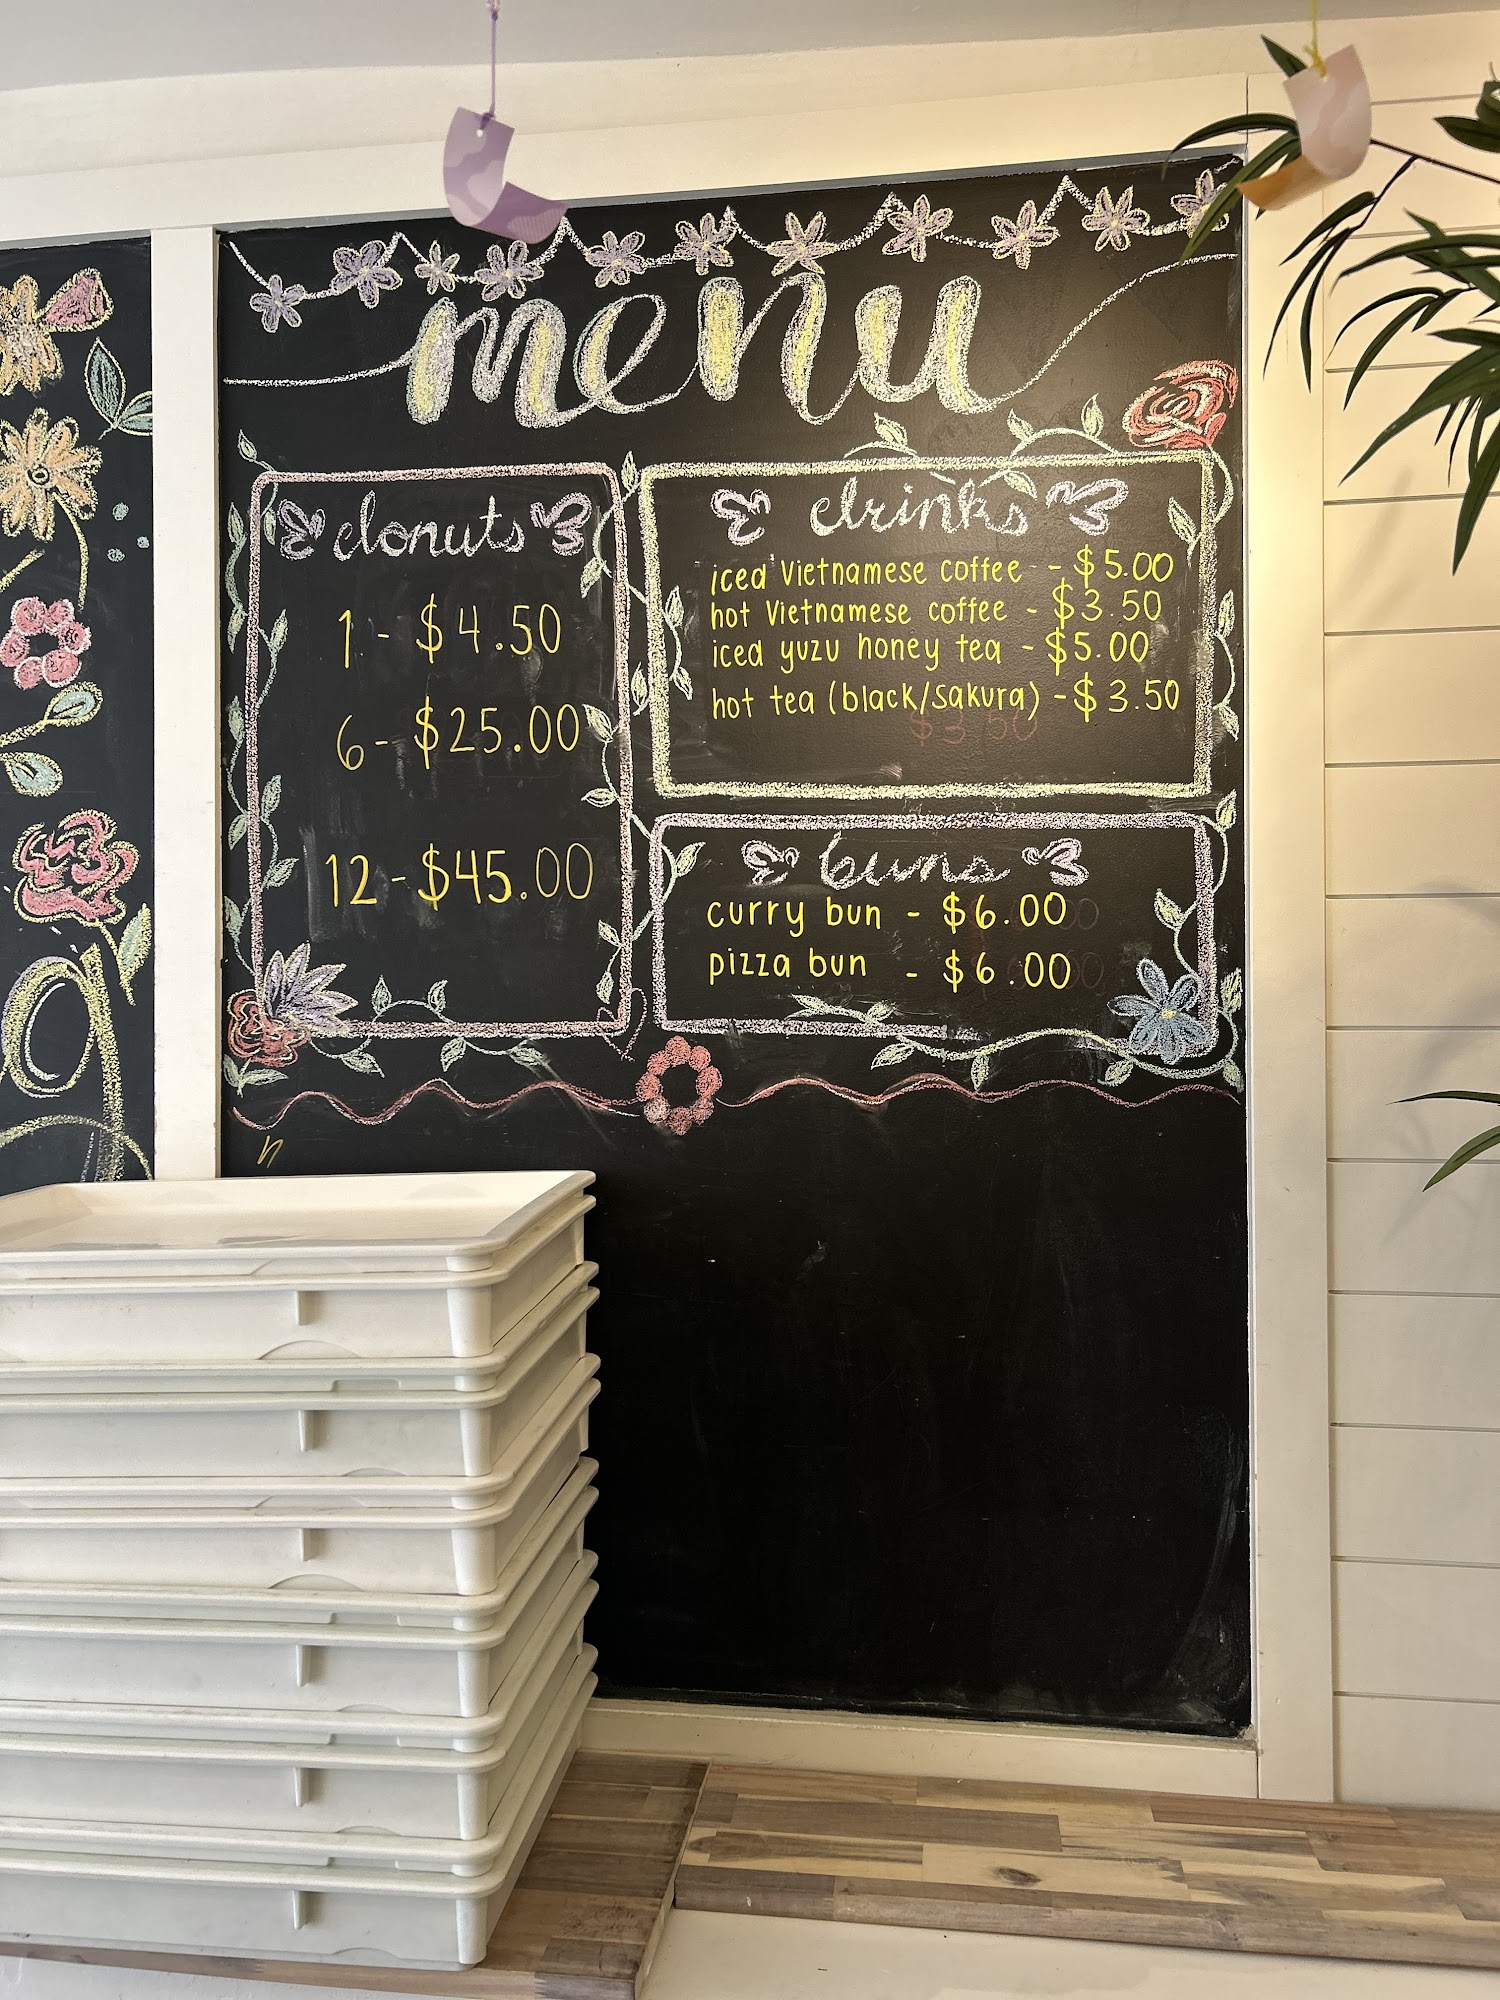 menu
donuts
1 - $4.50
6 - $25.00
12 - $45.00
drinks
iced Vietnamese coffee - $5.00
hot Vietnamese coffee - $3.50
iced yuzu honey tea - $5.00
hot tea (black/sakura) - $3.50
$3.50
buns
curry bun - $6.00
pizza bun - $6.00
n